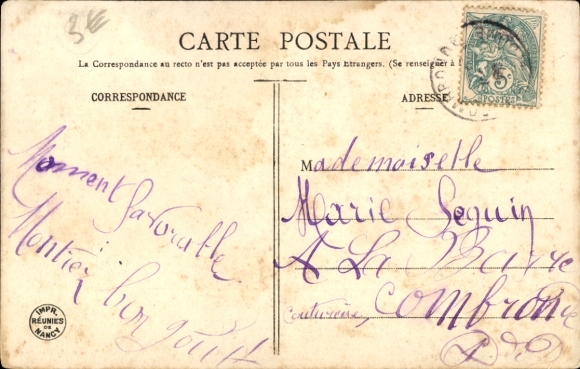 3€
CARTE POSTALE
La Correspondance au recto n'est pas acceptée par tous les Pays Etrangers. (Se renseigner à
CORRESPONDANCE
ADRESSE
5c
POSTES
Moment favorable
Montrez bon goût
Mademoiselle
Marie Seguin
A La Barre
couturière, Combronde
P. d. D
IMPR.
RÉUNIES
DE
NANCY